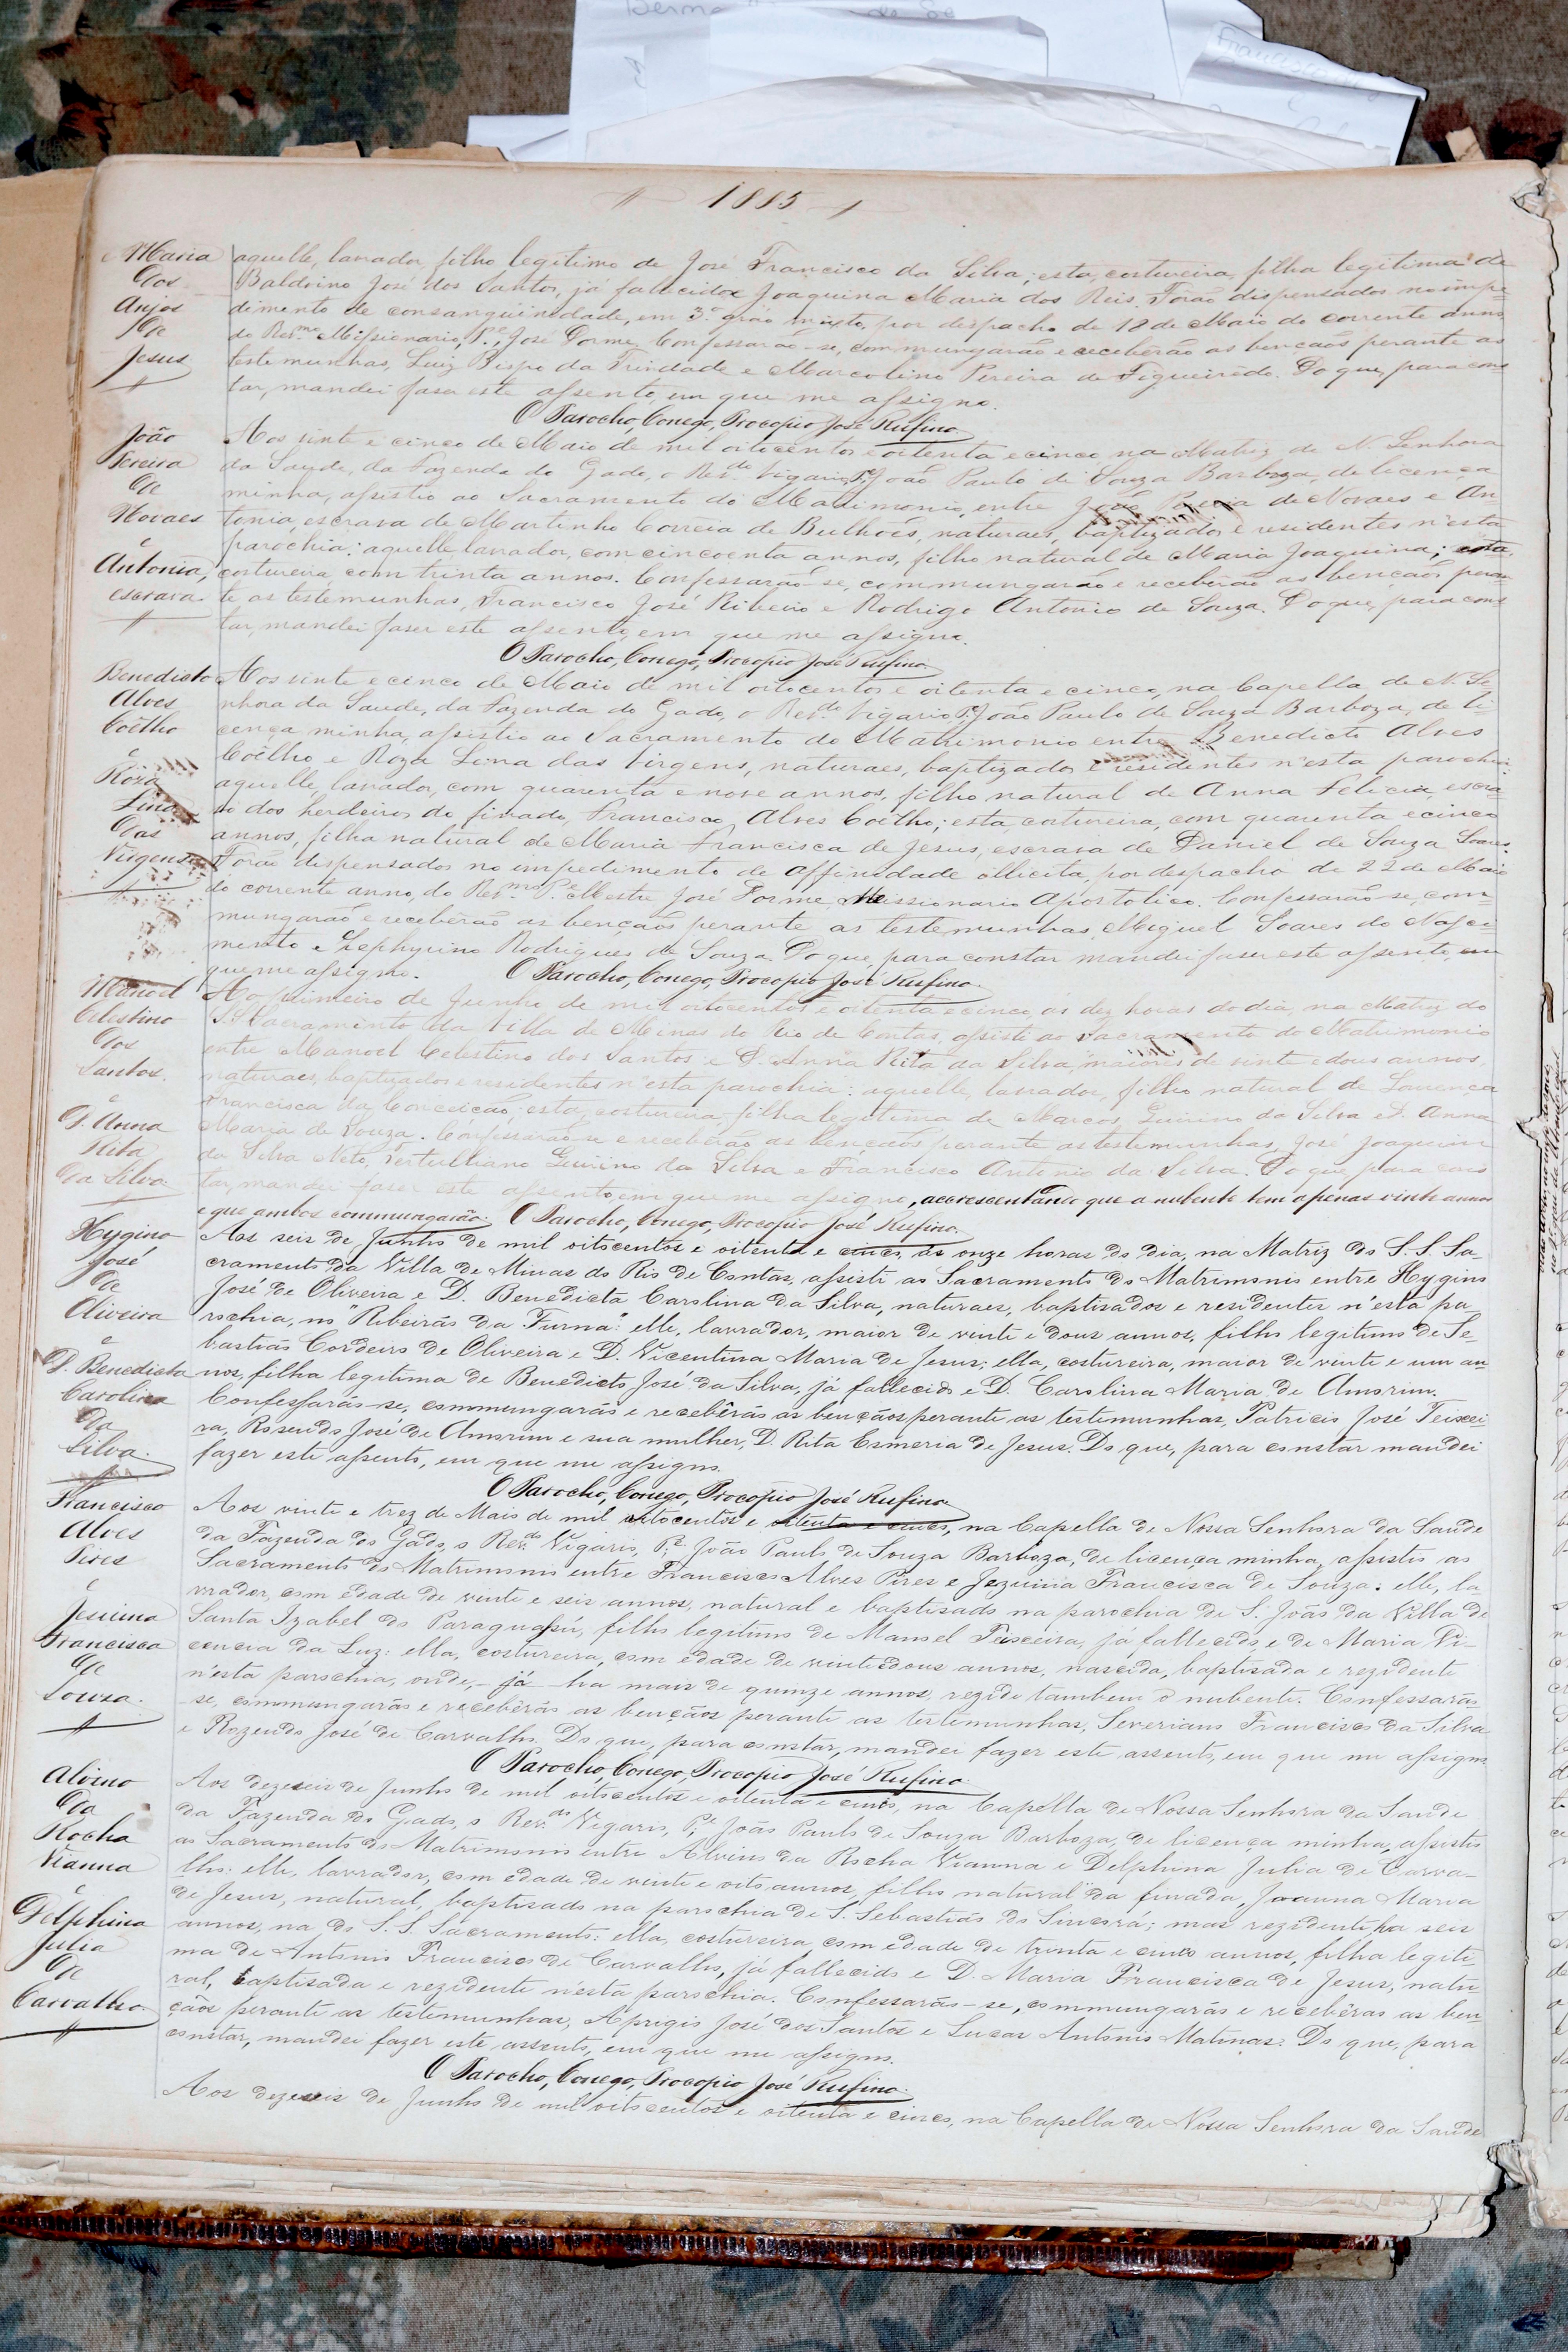 1885
Maria
dos
Anjos
de
Jesus
aquelle, lavrador, filho legitimo de José Francisco da Silva; esta, costureira, filha legitima de
Baldoino José dos Santos, já fallecido e Joaquina Maria dos Reis. Forão dispensados no impe-
dimento de consanguinidade, em 3.º gráo mixto, por despacho de 18 de Maio do corrente anno
do Rev.mo Missionario, P.e José Dorme. Confessarão-se, commungarão e receberão as bençãos perante as
testemunhas, Luiz Bispo da Trindade e Marcolino Pereira de Figueirêdo. Do que, para cons-
tar, mandei faser este assento, em que me assigno.
O Parocho, Conego, Procopio José Rufino
João
Pereira
de
Novaes
e
Antonia,
escrava
Aos vinte e cinco de Maio de mil oitocentos e oitenta e cinco, na Matriz de N. Senhora
da Saude, da Fazenda do Gado, o Rev.do Vigario, P.e João Paulo de Souza Barboza, de licença
minha, assistio ao Sacramento do Matrimonio, entre João Pereira de Novaes e An-
tonia, escrava de Martinho Corrêia de Bulhoēs, naturaes, baptizados e residentes n'esta
parochia: aquelle, lavrador, com cincoenta annos, filho natural de Maria Joaquina; esta,
costureira, com trinta annos. Confessarão-se, commungarão e receberão as bençãos peran-
te as testemunhas, Francisco José Ribeiro e Rodrigo Antonio de Souza. Do que, para cons-
tar, mandei faser este assento, em que me assigno.
O Parocho, Conego, Procopio José Rufino
Benedicto
Alves
Coêlho
e
Roza
Lina
das
Virgens
Aos vinte e cinco de Maio de mil oitocentos e oitenta e cinco, na Capella de N. Se-
nhora da Saude, da Fazenda do Gado, o Rev.do Vigario, P.e João Paulo de Souza Barboza, de li-
cença minha, assistio ao Sacramento do Matrimonio entre Benedicto Alves
Coêlho e Roza Lina das Virgens, naturaes, baptizados e residentes n'esta parochia:
aquelle, lavrador, com quarenta e nove annos, filho natural de Anna Felicia, escra-
va dos herdeiros do finado, Francisco Alves Coêlho; esta, costureira, com quarenta e cinco
annos, filha natural de Maria Francisca de Jesus, escrava de Daniel de Souza Soares.
Forão dispensados no impedimento de affinidade illicita, por despacho de 22 de Maio
do corrente anno, do Rev.mo P.e Mestre José Dorme, Missionario Apostolico. Confessarão-se, com-
mungarão e receberão as bençãos perante as testemunhas, Miguel Soares do Nasci-
mento e Zephyrino Rodrigues de Souza. Do que, para constar, mandei faser este assento, em
que me assigno. O Parocho, Conego, Procopio José Rufino
Manoel
Celestino
dos
Santos.
e
D. Anna
Rita
da Silva
Ao primeiro de Junho de mil oitocentos e oitenta e cinco, as dez horas do dia, na Matriz do
S. S. Sacramento da Villa de Minas do Rio de Contas, assisti ao Sacramento do Matrimonio
entre Manoel Celestino dos Santos e D. Anna Rita da Silva, maiores de vinte e dous annos,
naturaes, baptizados e residentes n'esta parochia: aquelle, lavrador, filho natural de Lourença
Francisca da Conceição; esta, costureira, filha legitima de Marcos Quirino da Silva e D. Anna
Maria de Souza. Confessarão-se e receberão as bençãos perante as testemunhas, José Joaquim
da Silva Neto, Tertulliano Quirino da Silva e Francisco Antonio da Silva. Do que, para cons-
tar, mandei faser este assento, em que me assigno, accrescentando que a nubente tem apenas vinte annos
e que ambos commungarão. O Parocho, Conego, Procopio José Rufino.
Hygino
José
de
Oliveira
e
D. Benedicta
Carolina
da
Silva.
Aos seis de Junho de mil oitocentos e oitenta e cinco, às onze horas do dia, na Matriz do S. S. Sa-
cramento da Villa de Minas do Rio de Contas, assisti ao Sacramento do Matrimonio entre Hygino
José de Oliveira e D. Benedicta Carolina da Silva, naturaes, baptisados e residentes n'esta pa-
rochia, no "Ribeirão da Furna": elle, lavrador, maior de vinte e dous annos, filho legitimo de Se-
bastião Cordeiro de Oliveira e D. Vicentina Maria de Jesus; ella, costureira, maior de vinte e um an-
nos, filha legitima de Benedicto José da Silva, já fallecido e D. Carolina Maria de Amorim.
Confessarão-se, commungarão e recebêrão as bençãos perante as testemunhas, Patricio José Teixei-
ra, Rosendo José de Amorim e sua mulher, D. Rita Esmeria de Jesus. Do que, para constar mandei
fazer este assento, em que me assigno.
O Parocho, Conego, Procopio José Rufino
Francisco
Alves
Pires
e
Jesuina
Francisca
de
Souza.
Aos vinte e trez de Maio de mil oitocentos e oitenta e cinco, na Capella de Nossa Senhora da Saude
da Fazenda do Gado, o Rev.do Vigario, P.e João Paulo de Souza Barboza, de licença minha, assistio ao
Sacramento do Matrimonio entre Francisco Alves Pires e Jezuina Francisca de Souza: elle, la-
vrador, com edade de vinte e seis annos, natural e baptisado na parochia de S. João da Villa de
Santa Izabel do Paraguassú, filho legitimo de Manoel Teixeira, já fallecido, e de Maria Vi-
cencia da Luz: ella, costureira, com edade de vinte e dous annos, nascida, baptisada e rezidente
n'esta parochia, onde, – já – ha mais de quinze annos, rezide tambem o nubente. Confessarão
-se, commungarão e recebêrão as bençãos perante as testemunhas, Severiano Francisco da Silva
e Rozendo José de Carvalho. Do que, para constar, mandei fazer este assento, em que me assigno.
O Parocho, Conego, Procopio José Rufino
Alvino
da
Rocha
Vianna
e
Delphina
Julia
de
Carvalho.
Aos dezeseis de Junho de mil oitocentos e oitenta e cinco, na Capella de Nossa Senhora da Saude
da Fazenda do Gado, o Rev.do Vigario, P.e João Paulo de Souza Barboza, de licença minha, assistio
ao Sacramento do Matrimonio entre Alvino da Rocha Vianna e Delphina Julia de Carva-
lho: elle, lavrador, com edade de vinte e oito annos, filho natural da finada, Joanna Maria
de Jesus, natural, baptisado na parochia de S. Sebastião do Sincorá; mas rezidente, ha seis
annos, na do S. S. Sacramento: ella, costureira com edade de trinta e cinco annos, filha legiti-
ma de Antonio Francisco de Carvalho, já fallecido e D. Maria Francisca de Jesus, natu-
ral, baptisada e rezidente n'esta parochia. Confessarão-se, commungarão e recebêrão as ben-
çãos perante as testemunhas, Aprigio José dos Santos e Lucas Antonio Matinas. Do que, para
constar, mandei fazer este assento, em que me assigno.
O Parocho, Conego, Procopio José Rufino.
Aos dezeseis de Junho de mil oitocentos e oitenta e cinco, na Capella de Nossa Senhora da Saude